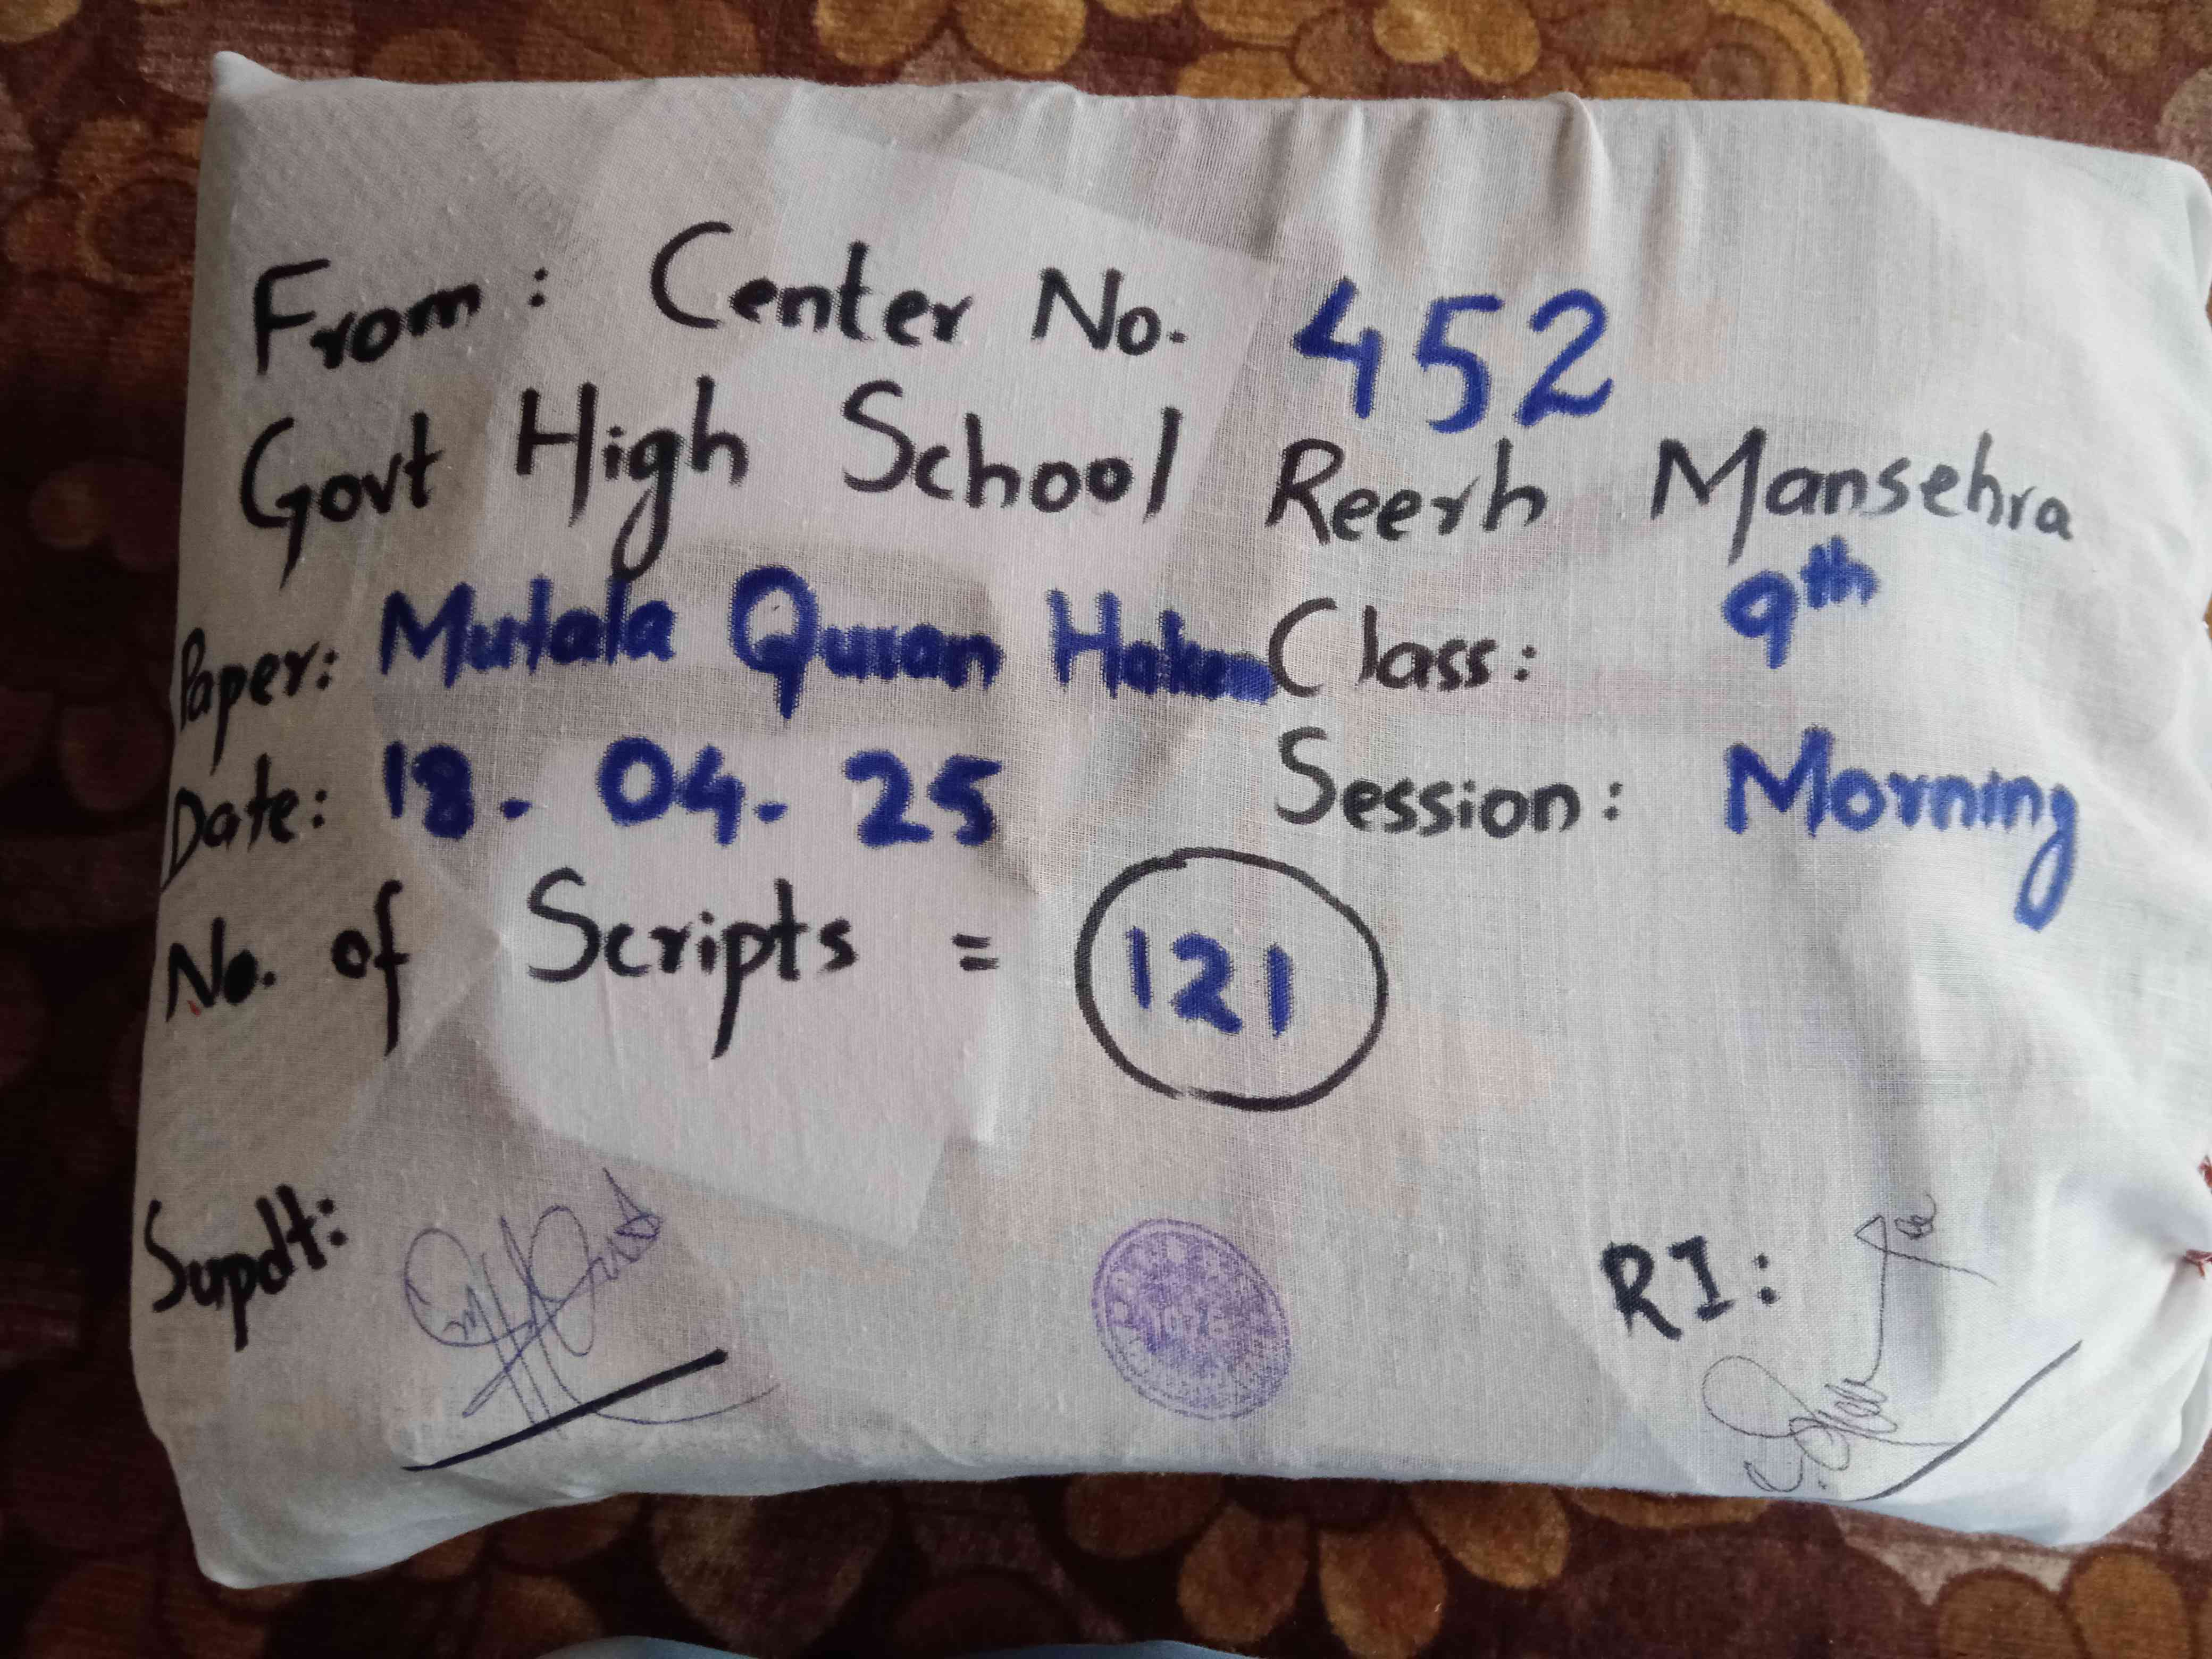 From: Center No. 452
Govt High School Reerh Mansehra
Paper: Mutala Quran Hakem Class: 9th
Date: 18. 04. 25 Session: Morning
No. of Scripts = 121
Supdt: RI: